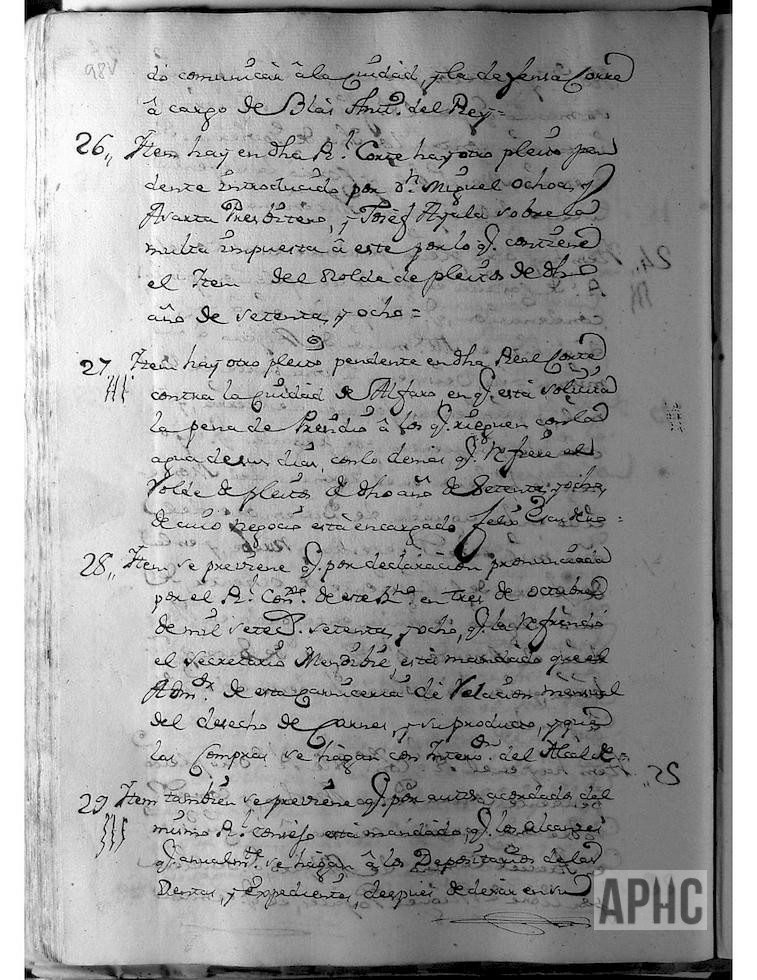 98V
do comunicar â la Ciudad, y la defensa Corre
â cargo de Blas Antt.º del Rey =
26,, Ittem hay en dha R.l Corte hay otro pleito pen
dente introducido por d.n Miguel Ochoa, y
Avarta Presbitero, y Josef Ayala sobre la
multa impuesta â este por lo q.e contiene
el Item del Rolde de pleitos de dho
año de setenta, y ocho =
27 Ittem hay otro pleito pendente en dha Real Corte
contra la Ciudad de Alfaro, en q.e está solicita
la pena de Presidio â los q.e rieguen con la
agua de sus dias, con lo demas q.e refiere el
Rolde de pleitos de dho año de Setenta, y ocho,
de cuio negocio está encargado Felix
28,, Ittem se previene q.e por declaracion pronunciada
por el R.l Con.º de este R.no en tres de octubre
de mil setec.s setenta, y ocho, q.e la refrendó
el secretario Mendibil, está mandado que el
Adm.or de esta carniceria dé Relacion mensual
del desecho de Carnes, y su producto, y que
las Compras se hagan con Interv.on del Alcalde =
29 Ittem tambien se previene q.e por autos acordados del
mismo R.l consejo está mandado q.e los alcanzes
q.e anualm.te se hagan â los Depositarios de las
Rentas, y Expedientes, despues de dejar en su
APHC